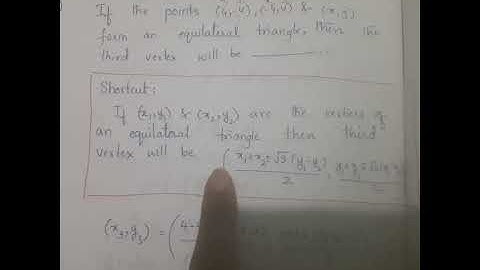 If the points (4,4), (-4,4) & (x,y)
form an equilateral triangle, then the
third vertex will be
Shortcut:
If (x₁,y₁) & (x₂,y₂) are the vertices of
an equilateral triangle then third
vertex will be (x₁+x₂±√3(y₁-y₂)/2,
(x₃,y₃) = (